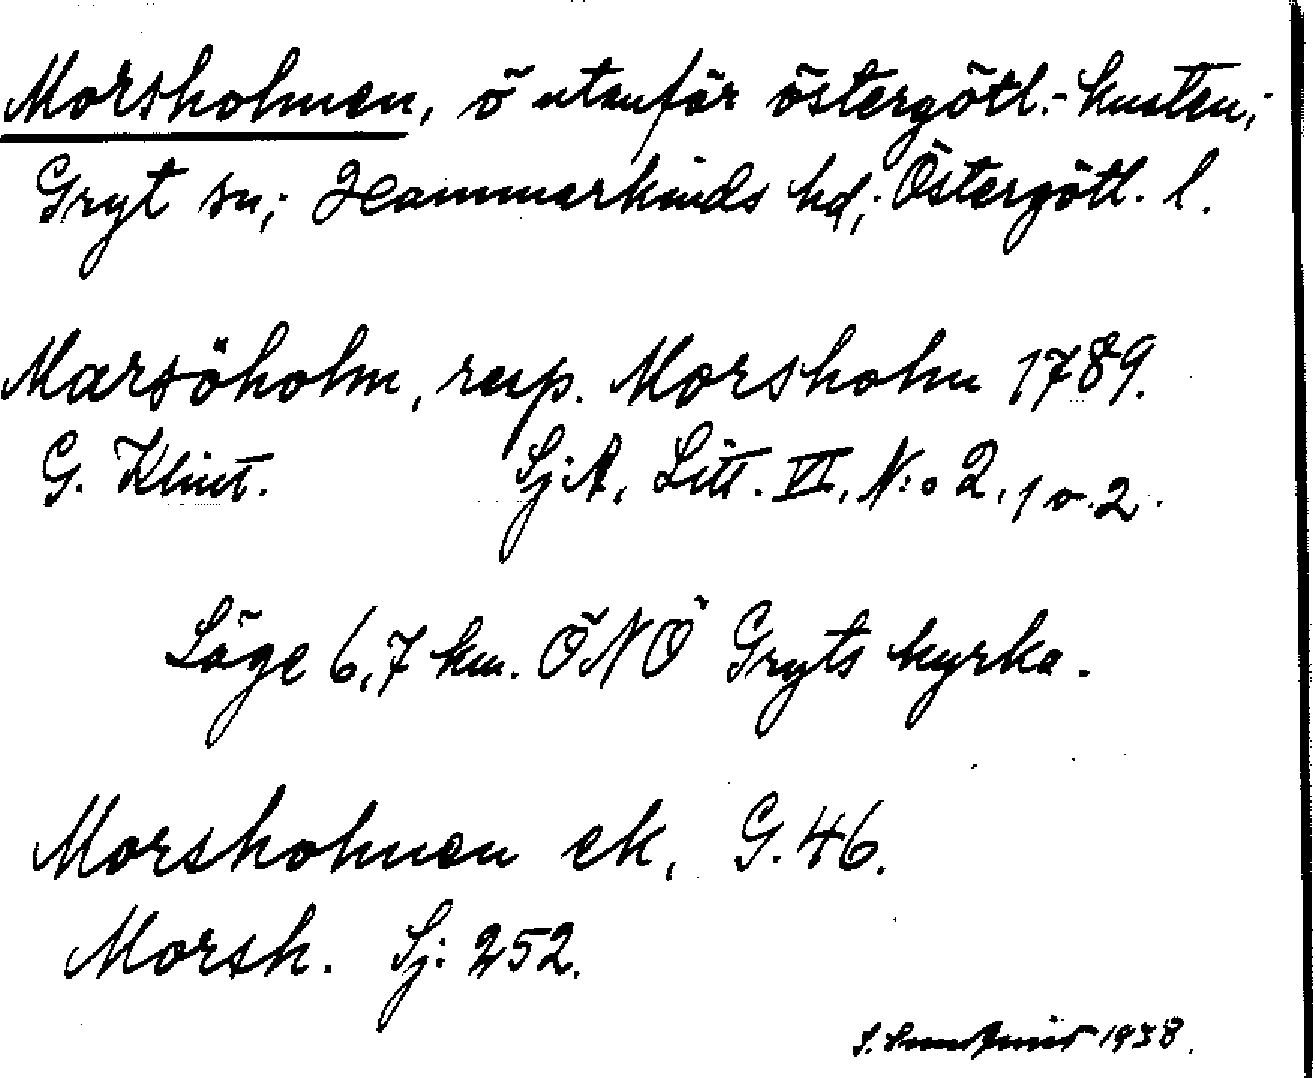 Morsholmen, ö utanför östergötl.-kusten;
Gryt sn; Hammarkinds hd; Östergötl. l.
Marsöholm, resp. Morsholm 1789.
G. Klint. Sj:A, Litt. VI, N:o 2, 1 o. 2.
Läge 6,7 km. ÖNÖ Gryts kyrka.
Morsholmen ek, G. 46.
Morsh. Sj: 252.
1938.